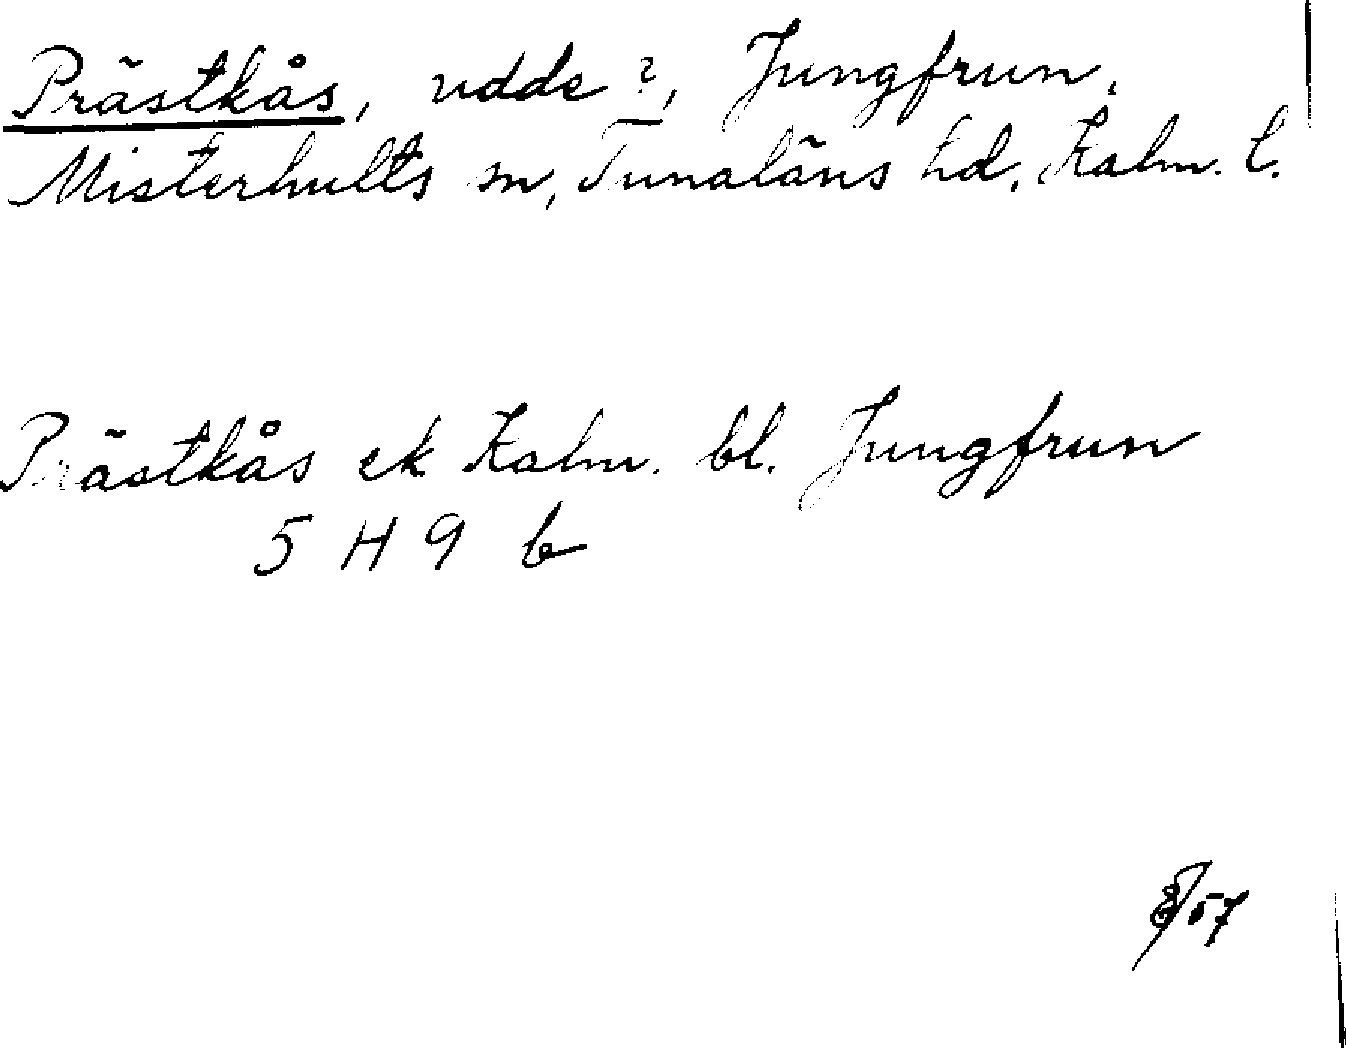 Prästkås, udde?, Jungfrun,
Misterhults sn, Tunaläns hd, Kalm. l.
Prästkås ek Kalm. bl. Jungfrun
5 H 9 b
57